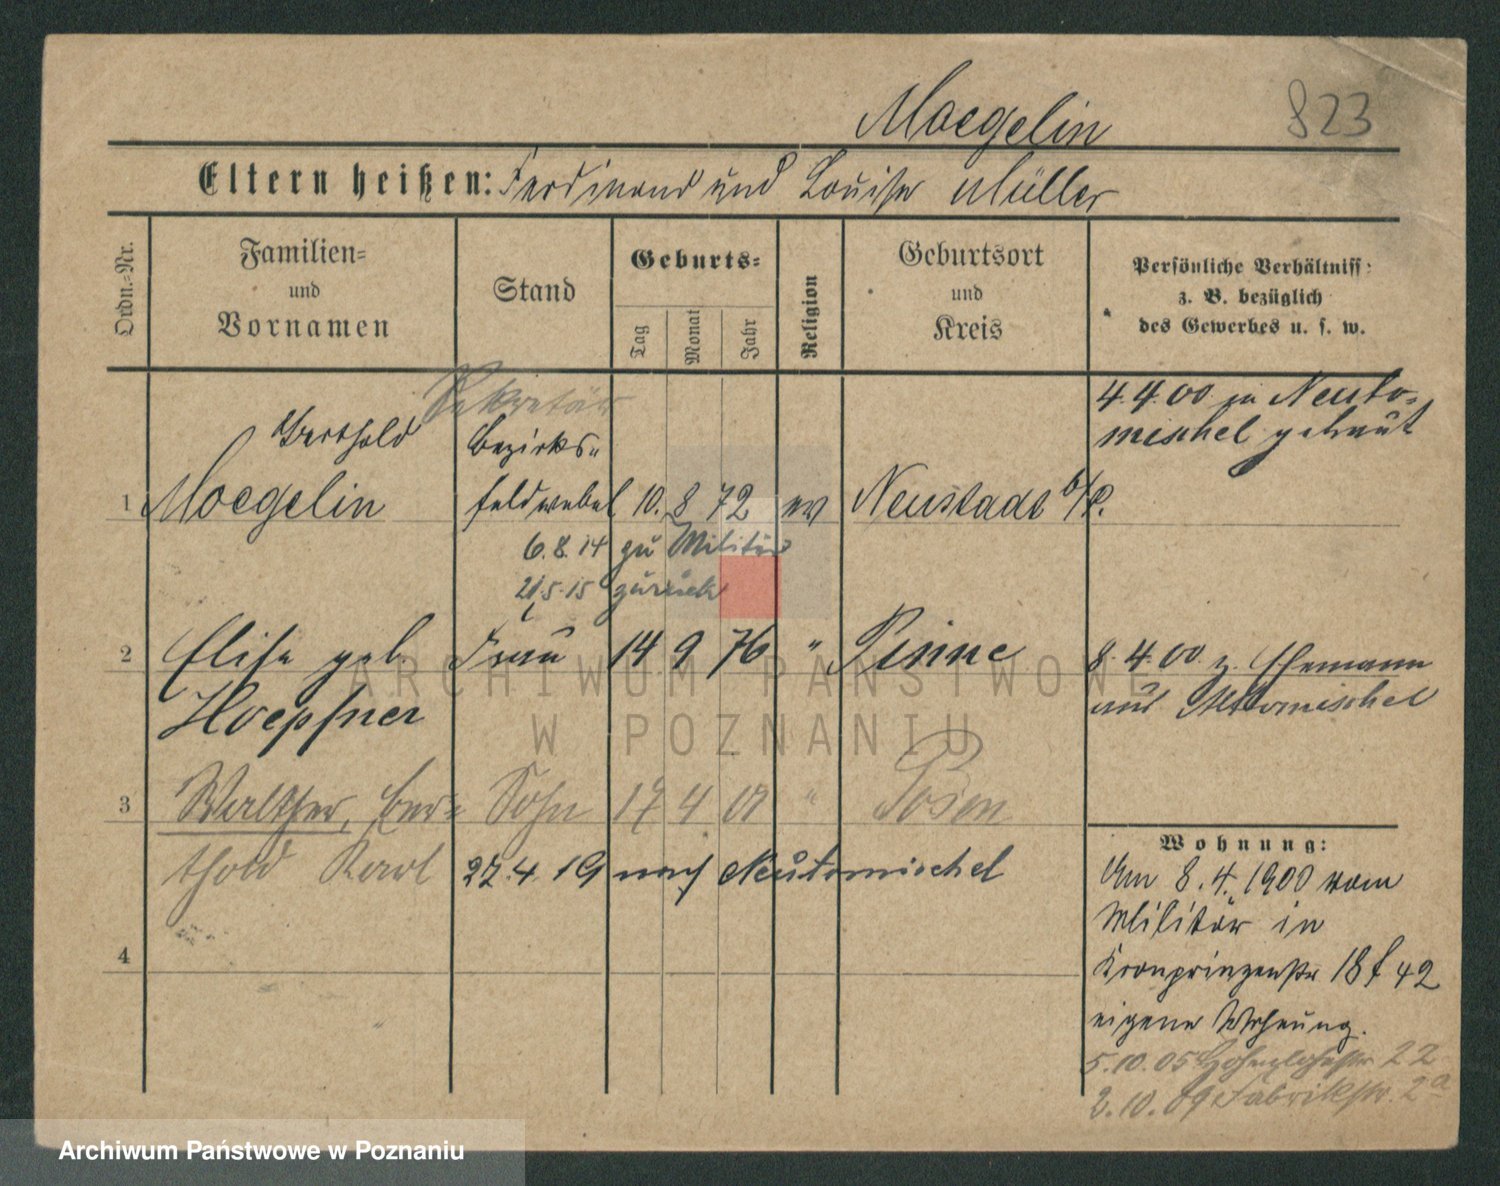 Moegelin 823
Eltern heißen: Ferdinand und Louise Müller
Ordn.-Nr.
Familien-
und
Vornamen
Stand
Geburts-
Tag
Monat
Jahr
Religion
Geburtsort
und
Kreis
Persönliche Verhältniss:
z. B. bezüglich
des Gewerbes u. s. w.
Sekretär
4.4.00 in Neuto-
mischel getraut
Berthold Bezirks-
1 Moegelin feldwebel 10. 8 72 ev Neustadt b/P.
6.8.14 zu Militär
21.5.15 zurück
2 Elise geb. Frau 14 9 76 " Pinne 8.4.00 z. Ehemann
Hoepfner aus Ntomischel
3 Walther, Ber- Sohn 17 4 01 " Posen
thold Karl 27.4.19 nach Neutomischel
4
Wohnung:
Am 8.4.1900 vom
Militär in
Kronprinzenstr 18 f 42
eigene Wohnung.
5.10.05 Hohenlohestr 22
2.10.09 Fabrikstr. 2a
ARCHIWUM PAŃSTWOWE
W POZNANIU
Archiwum Państwowe w Poznaniu